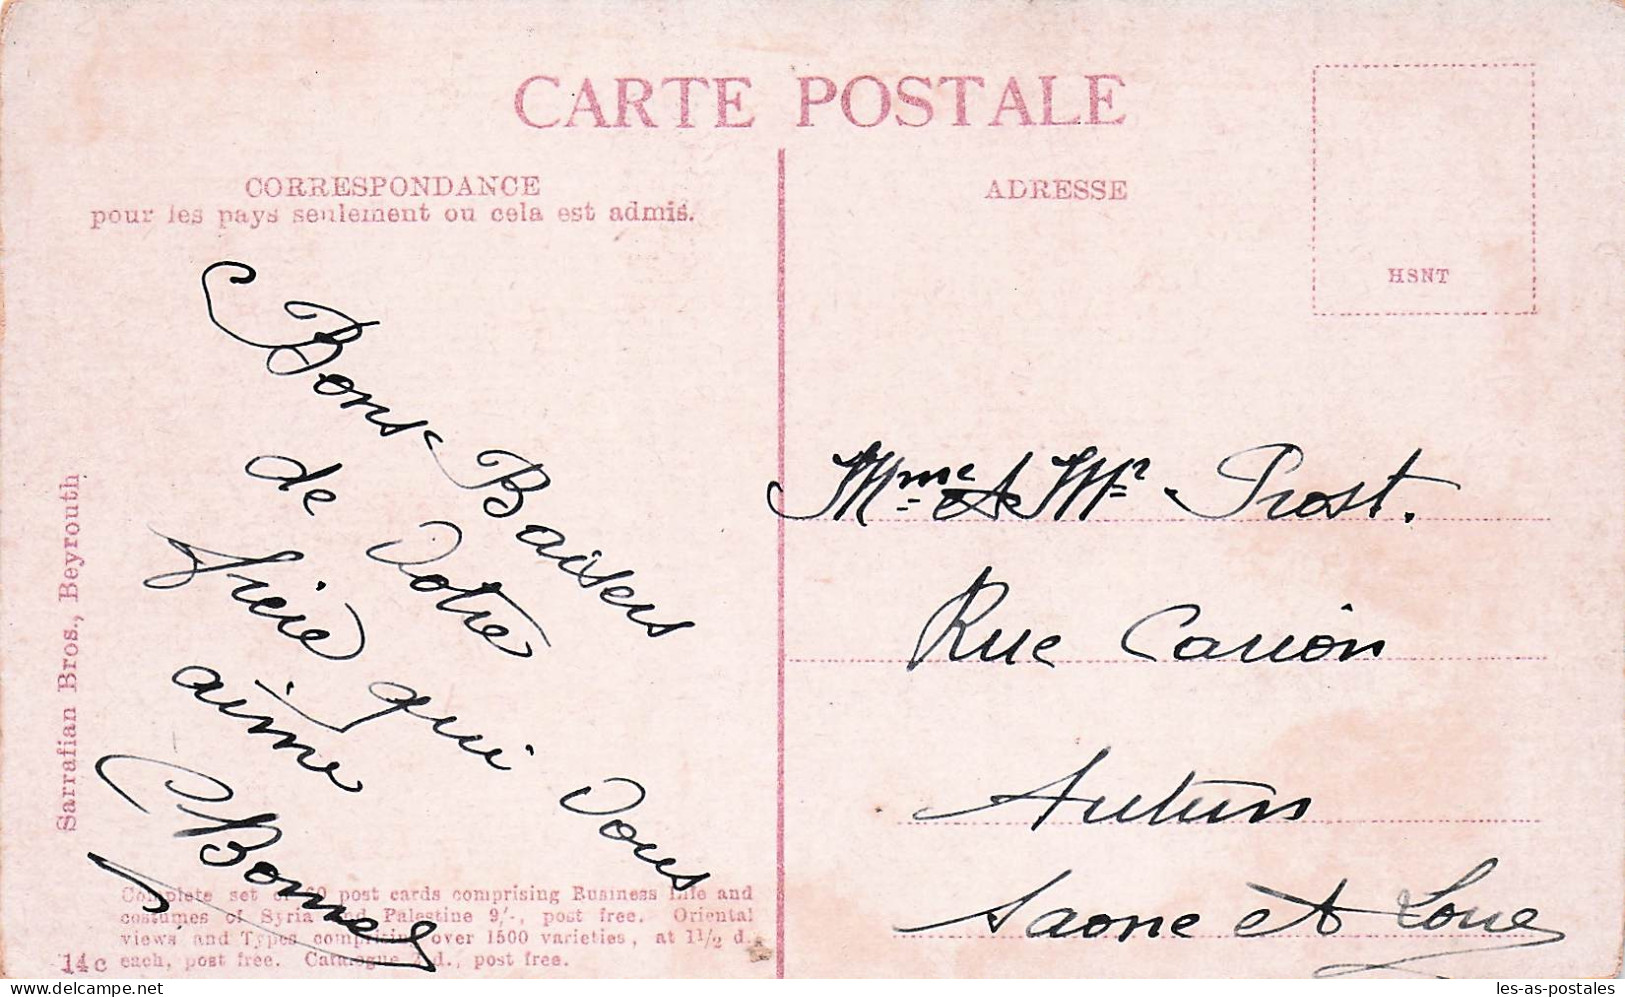 CARTE POSTALE
CORRESPONDANCE
pour les pays seulement ou cela est admis.
ADRESSE
HSNT
Bons Baisers
de Votre
frère qui Vous
aime
Mme & Mr Prost.
Rue Carion
Autun
Saone et Loire
Sarrafian Bros., Beyrouth
Complete set of 60 post cards comprising Business Life and
costumes of Syria and Palestine 9/-, post free. Oriental
views and Types comprising over 1500 varieties, at 1 1/2 d.
each, post free. Catalogue d., post free.
14c
les-as-postales